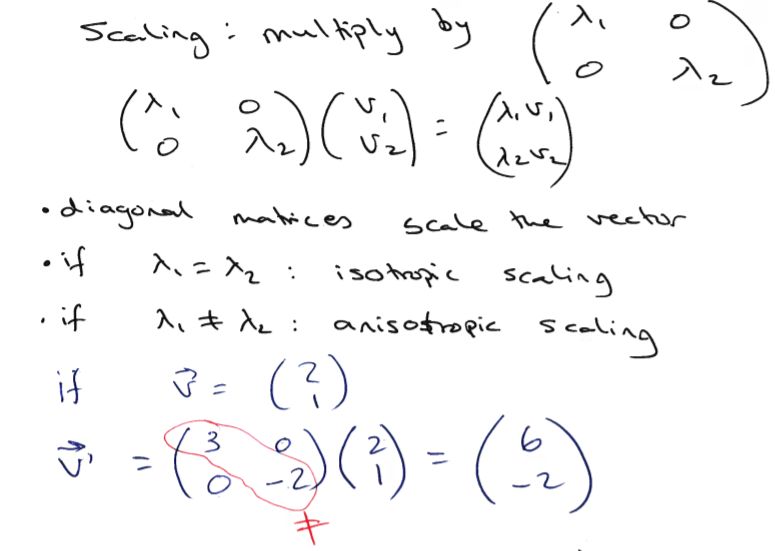 Scaling: multiply by (λ₁ 0
0 λ₂)
(λ₁ 0
0 λ₂)(v₁
v₂) = (λ₁v₁
λ₂v₂)
• diagonal matrices scale the vector
• if λ₁ = λ₂ : isotropic scaling
• if λ₁ ≠ λ₂ : anisotropic scaling
if v⃗ = (2
1)
v⃗' = (3 0
0 -2)(2
1) = (6
-2)
≠